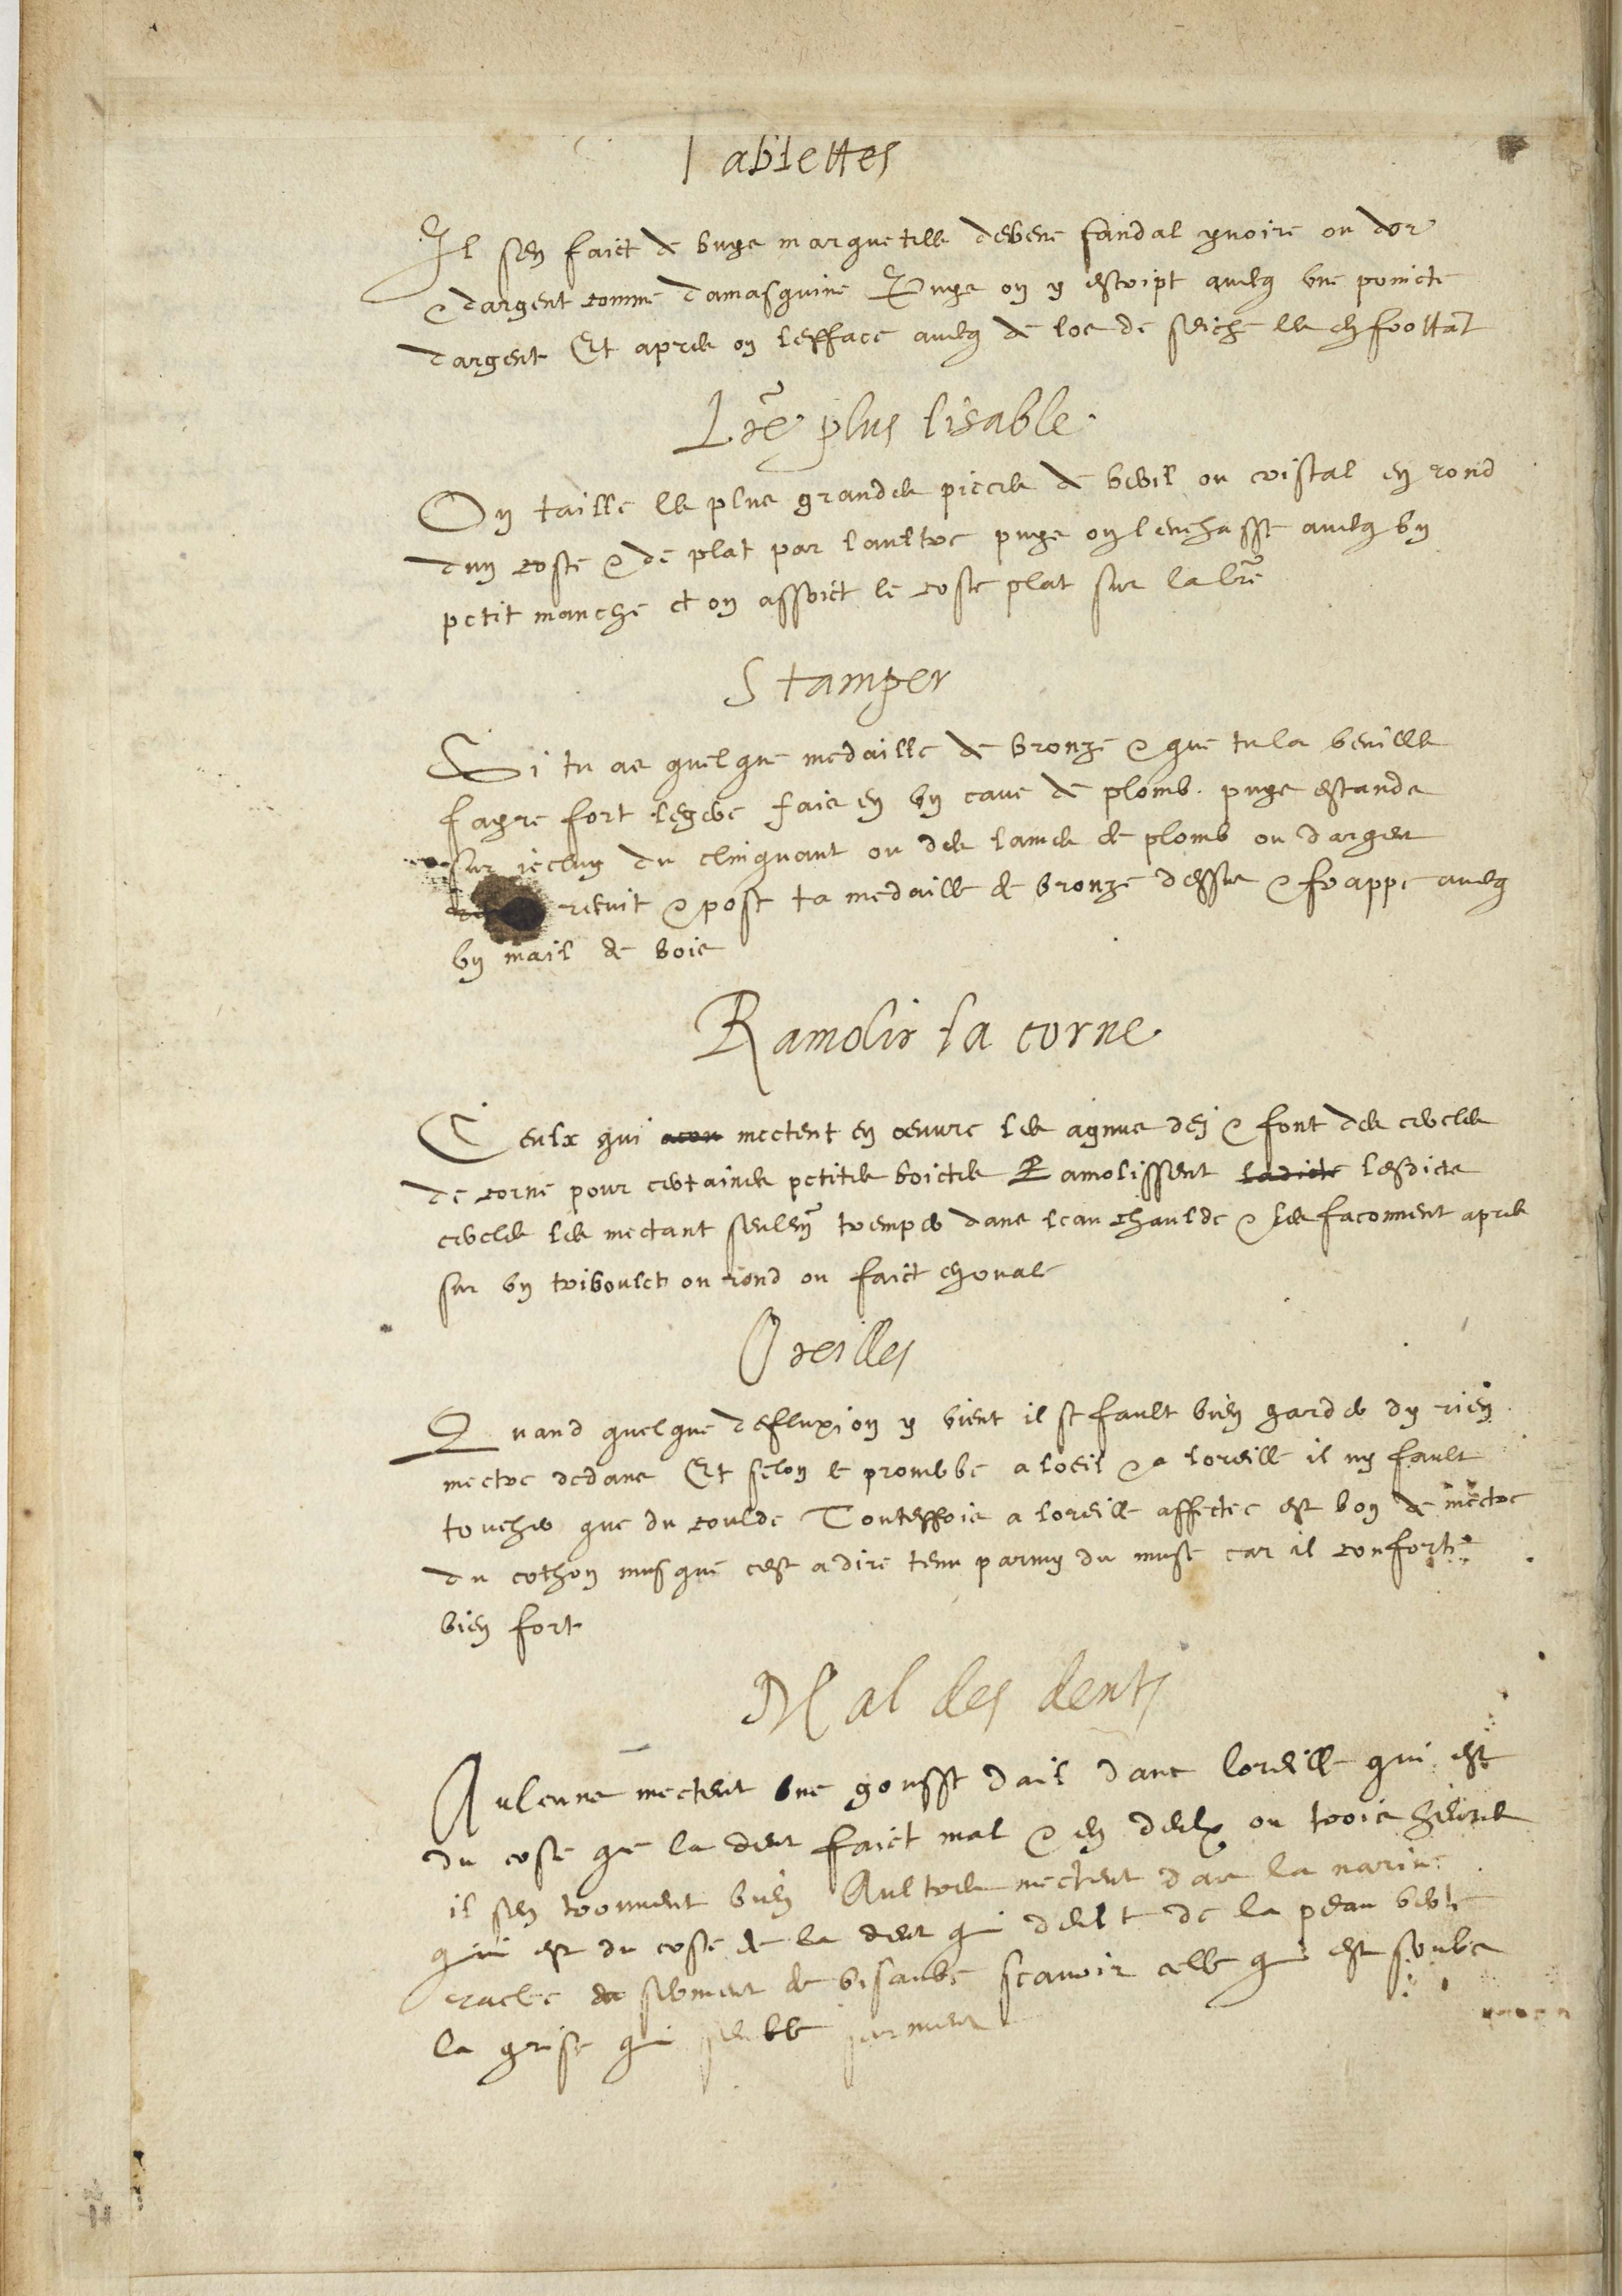 Tablettes
Il sen faict de buys marquetees debene sandal yvoire ou dor
& dargent comme damasquine Puys on y escript avecq une poincte
dargent Et apres on lefface avecq de los de seiche les en frottant
Lre plus lisable
On taille les plus grandes pieces de beril ou cristal en rond
dun coste & de plat par laultre puys on lenchasse avecq un
petit manche et on assoict le coste plat sur la lre
Stamper
Si tu as quelque medaille de bronze & que tu la veuilles
fayre fort legere fais en un cave de plomb puys estands
sur icelluy du clinquant ou des lames de plomb ou dargent
recuit & pose ta medaille de bronze dessus & frappe avecq
un mail de bois
Ramolir la corne
Ceulx qui mectent en œuvre les agnus dei & font des cercles
de corne pour certaines petites boictes Ramolissent ladicte lesdicts
cercles les mectant seulem tremper dans leau chaulde & les faconnent apres
sur un triboulet ou rond ou faict en ovale
Oreilles
Quand quelque defluxion y vient il se fault bien garder dy rien
mectre dedans Et selon le proverbe a loeil & a loreille il ny fault
toucher que du coulde Touteffois a loreille affectee est bon de mectre
du cothon musque cest a dire tenu parmy du musc car il conforte
bien fort
Mal des dents
Aulcuns mectent une gousse dail dans loreille qui est
du coste que la dent faict mal & en deulx ou trois heures
il sen trouvent bien Aultres mectent dans la narine
qui est du coste de la dent qui deult de la peau verte
raclee de serment de scavoir celle qui est soubs
la grise qui semble